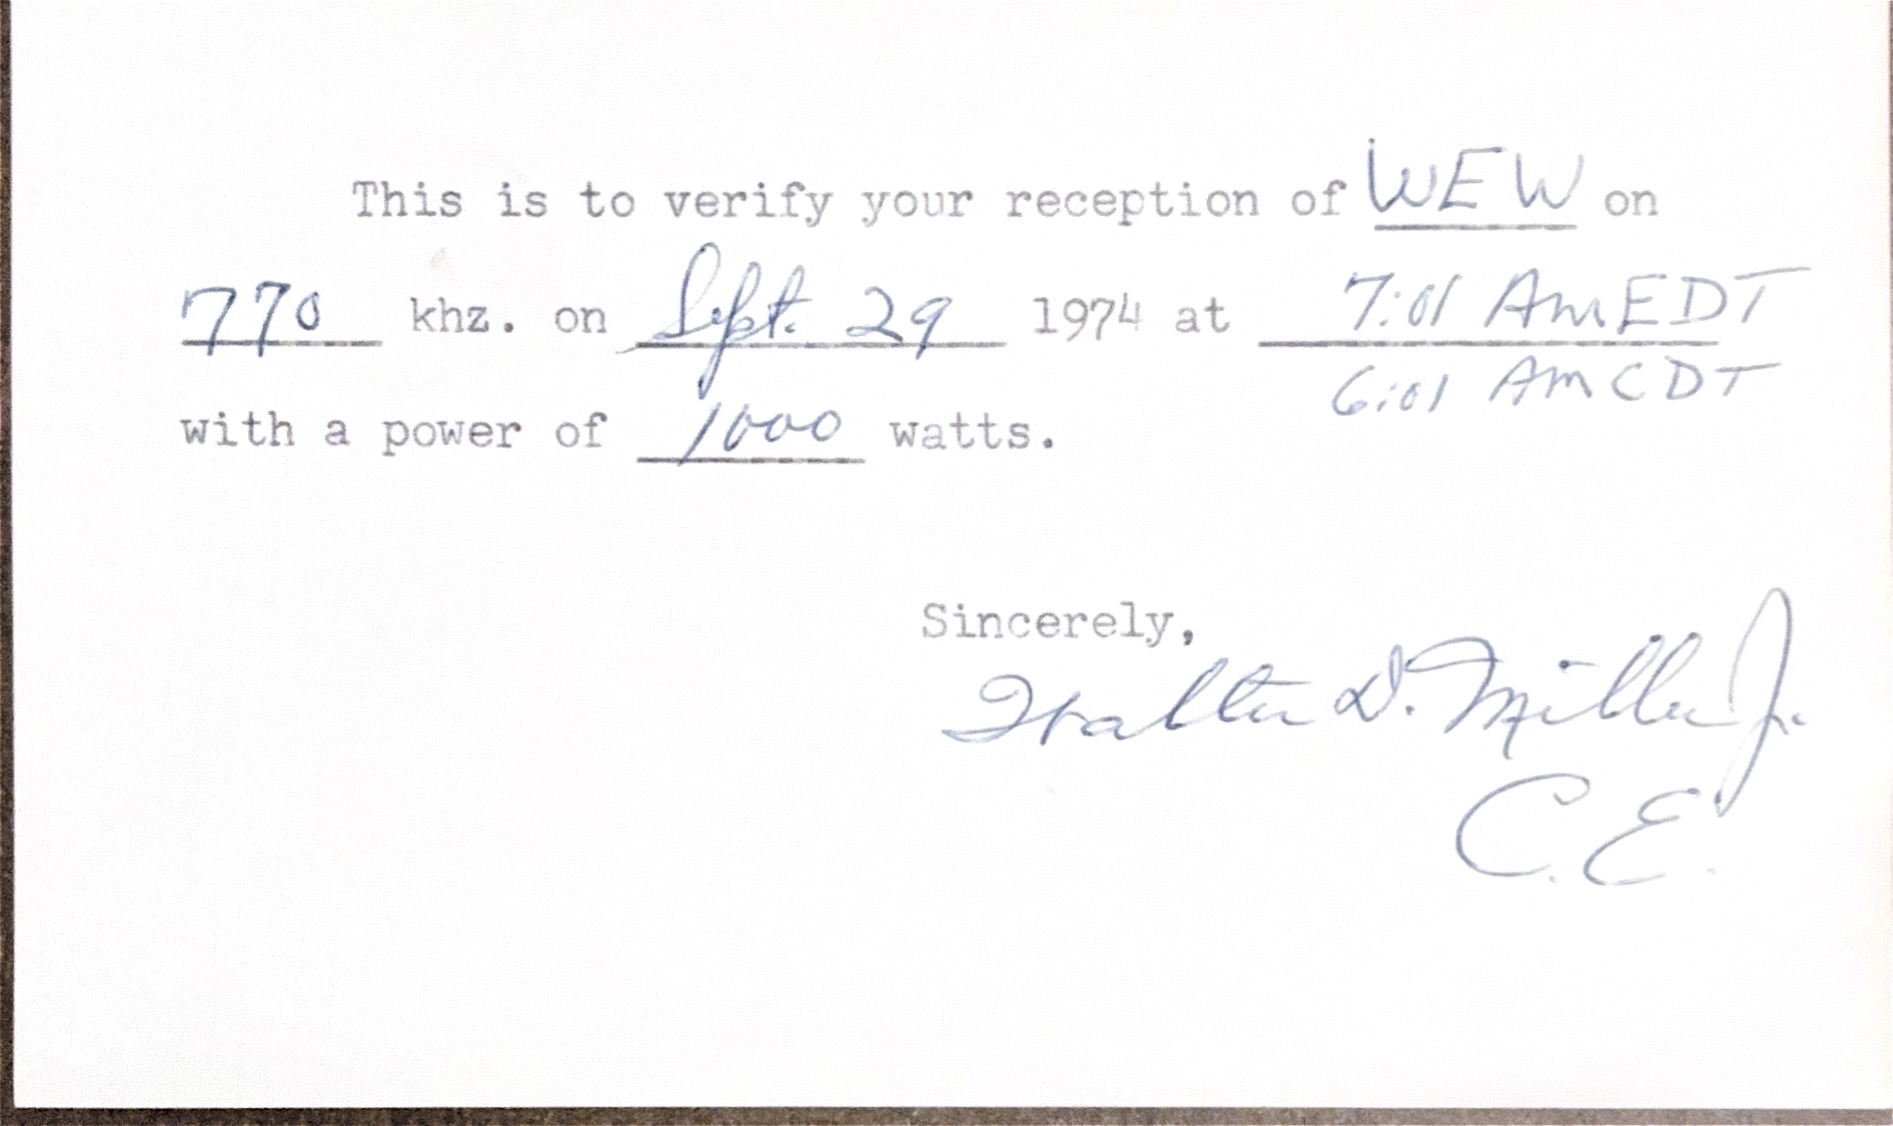 This is to verify your reception of WEW on
770 khz. on Sept. 29 1974 at 7:01 AM EDT
6:01 AM CDT
with a power of 1000 watts.
Sincerely,
Walter D. Miller Jr.
C.E.